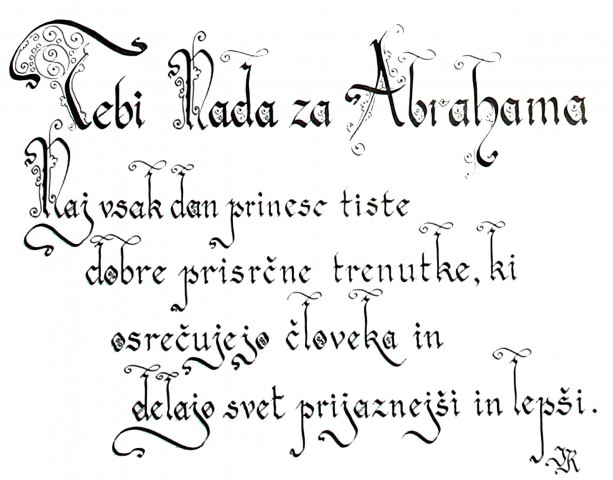 Tebi Nada za Abrahama
Naj vsak dan prinese tiste
dobre prisrčne trenutke, ki
osrečujejo človeka in
delajo svet prijaznejši in lepši.